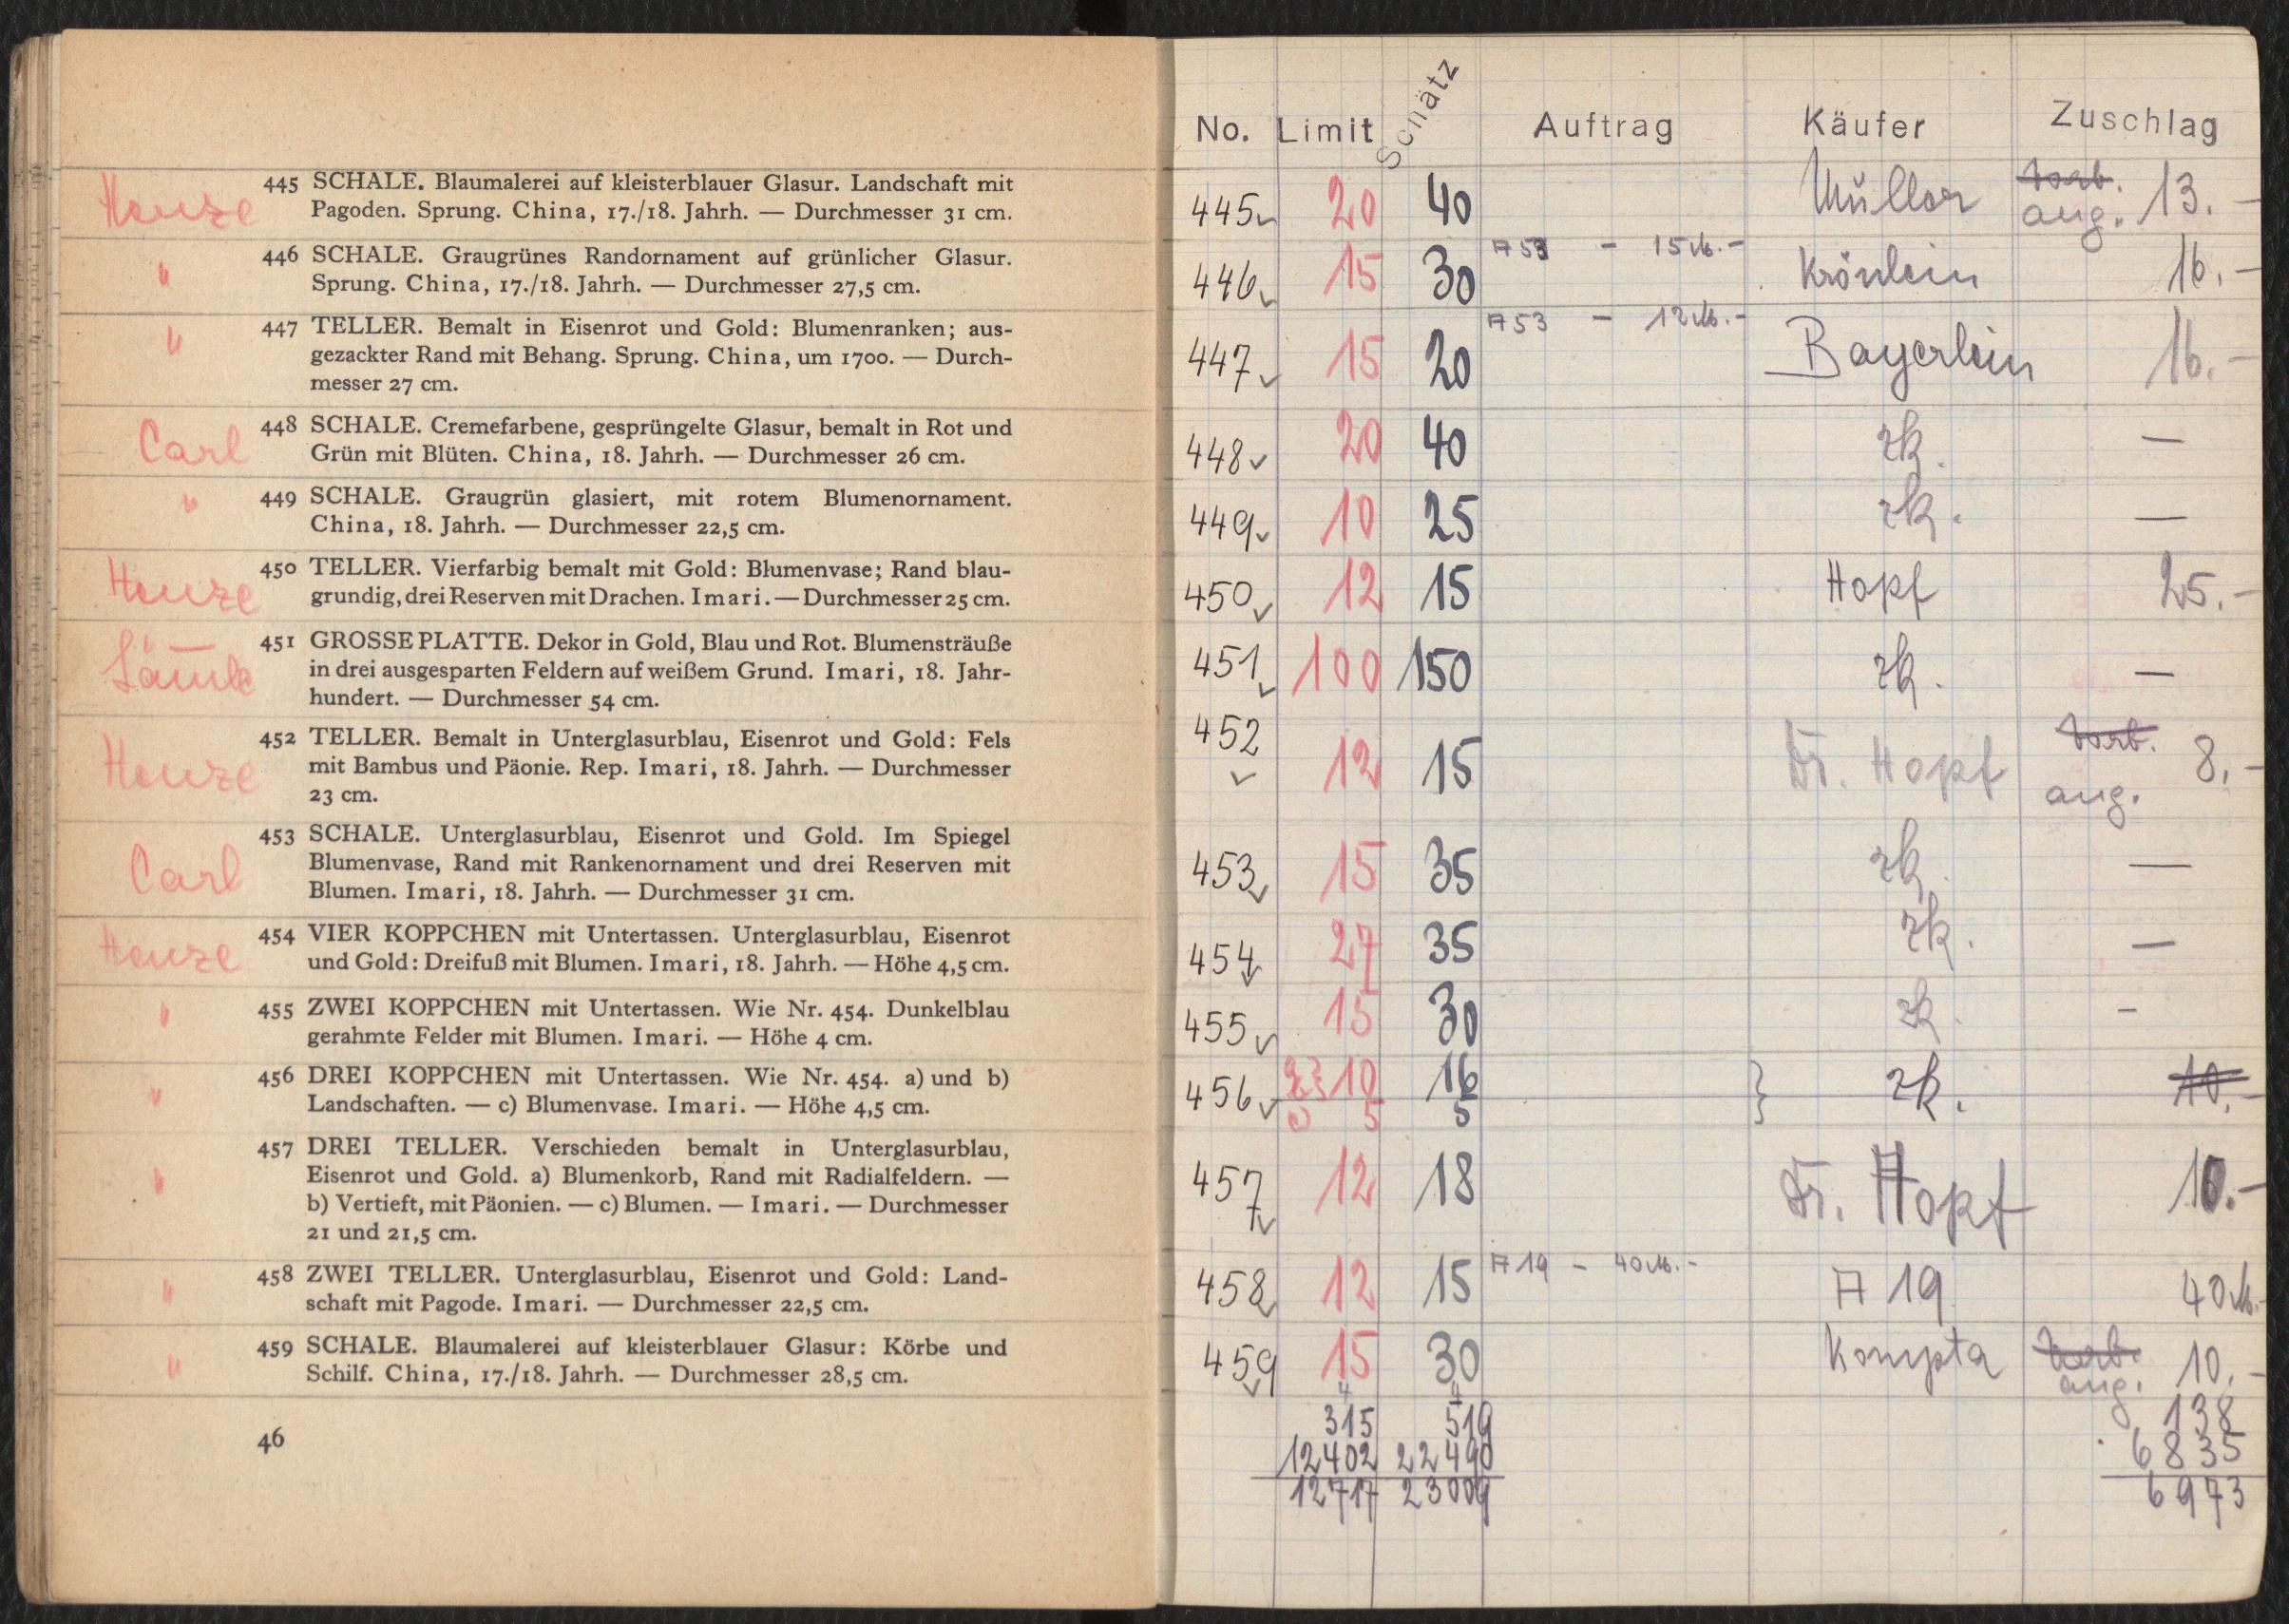 Henze 445 SCHALE. Blaumalerei auf kleisterblauer Glasur. Landschaft mit
Pagoden. Sprung. China, 17./18. Jahrh. — Durchmesser 31 cm.
" 446 SCHALE. Graugrünes Randornament auf grünlicher Glasur.
Sprung. China, 17./18. Jahrh. — Durchmesser 27,5 cm.
" 447 TELLER. Bemalt in Eisenrot und Gold: Blumenranken; aus-
gezackter Rand mit Behang. Sprung. China, um 1700. — Durch-
messer 27 cm.
Carl 448 SCHALE. Cremefarbene, gesprüngelte Glasur, bemalt in Rot und
Grün mit Blüten. China, 18. Jahrh. — Durchmesser 26 cm.
" 449 SCHALE. Graugrün glasiert, mit rotem Blumenornament.
China, 18. Jahrh. — Durchmesser 22,5 cm.
Henze 450 TELLER. Vierfarbig bemalt mit Gold: Blumenvase; Rand blau-
grundig, drei Reserven mit Drachen. Imari. — Durchmesser 25 cm.
451 GROSSE PLATTE. Dekor in Gold, Blau und Rot. Blumensträuße
in drei ausgesparten Feldern auf weißem Grund. Imari, 18. Jahr-
hundert. — Durchmesser 54 cm.
Henze 452 TELLER. Bemalt in Unterglasurblau, Eisenrot und Gold: Fels
mit Bambus und Päonie. Rep. Imari, 18. Jahrh. — Durchmesser
23 cm.
Carl 453 SCHALE. Unterglasurblau, Eisenrot und Gold. Im Spiegel
Blumenvase, Rand mit Rankenornament und drei Reserven mit
Blumen. Imari, 18. Jahrh. — Durchmesser 31 cm.
Henze 454 VIER KOPPCHEN mit Untertassen. Unterglasurblau, Eisenrot
und Gold: Dreifuß mit Blumen. Imari, 18. Jahrh. — Höhe 4,5 cm.
" 455 ZWEI KOPPCHEN mit Untertassen. Wie Nr. 454. Dunkelblau
gerahmte Felder mit Blumen. Imari. — Höhe 4 cm.
" 456 DREI KOPPCHEN mit Untertassen. Wie Nr. 454. a) und b)
Landschaften. — c) Blumenvase. Imari. — Höhe 4,5 cm.
" 457 DREI TELLER. Verschieden bemalt in Unterglasurblau,
Eisenrot und Gold. a) Blumenkorb, Rand mit Radialfeldern. —
b) Vertieft, mit Päonien. — c) Blumen. — Imari. — Durchmesser
21 und 21,5 cm.
" 458 ZWEI TELLER. Unterglasurblau, Eisenrot und Gold: Land-
schaft mit Pagode. Imari. — Durchmesser 22,5 cm.
" 459 SCHALE. Blaumalerei auf kleisterblauer Glasur: Körbe und
Schilf. China, 17./18. Jahrh. — Durchmesser 28,5 cm.
46
No. Limit Schätz Auftrag Käufer Zuschlag
445 20 40 Müller vorb. ang. 13.-
446 15 30 A 53 - 15 M.- Krönlein 16.-
447 15 20 A 53 - 12 M.- Bayerlein 16.-
448 20 40 zk. —
449 10 25 zk. —
450 12 15 Hopf 25.-
451 100 150 zk. —
452 12 15 Dr. Hopf vorb. ang. 8.-
453 15 35 zk. —
454 27 35 zk. —
455 15 30 zk. -
456 10 16 } zk. 10.-
c 5 5
457 12 18 Dr. Hopf 10.-
458 12 15 A 19 - 40 M.- A 19 40 M.-
459 15 30 Kompta vorb. ang. 10.-
315 519 138
12402 22490 6835
12717 23009 6973